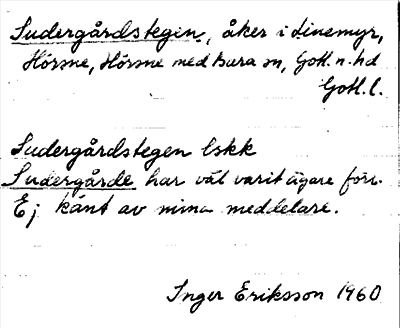 Sudergårdstegen, åker i Linemyr,
Hörsne, Hörsne med Bara sn, Gotl. n. hd
Gotl. l.
Sudergårdstegen lskk
Sudergårde har väl varit ägare förr.
Ej känt av mina meddelare.
Inger Eriksson 1960